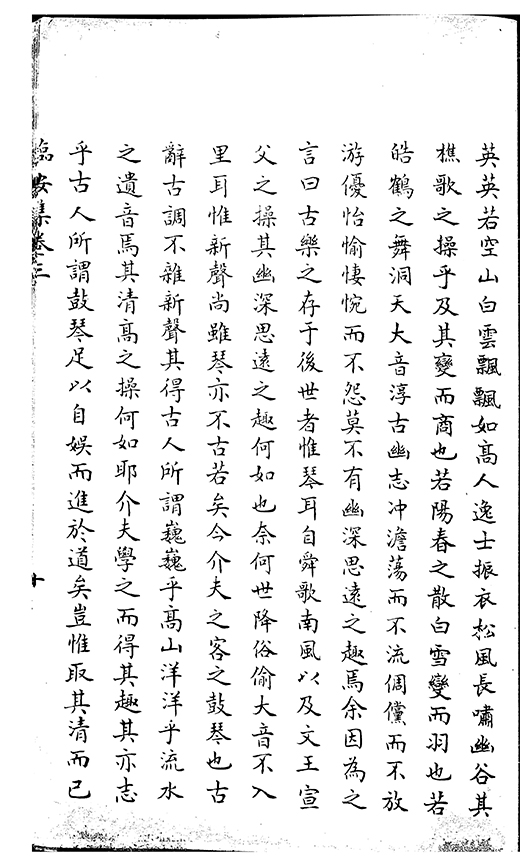 英英若空山白雲飄飄如髙人逸士振衣松風長嘯幽谷其
樵歌之操乎及其變而商也若陽春之散白雪變而羽也若
皓鶴之舞洞天大音淳古幽志冲澹蕩而不流倜儻而不放
游優怡愉悽惋而不怨莫不有幽深思遠之趣焉余因為之
言曰古樂之存于後世者惟琴耳自舜歌南風以及文王宣
父之操其幽深思遠之趣何如也奈何世降俗偷大音不入
里耳惟新聲尚雖琴亦不古若矣今介夫之客之鼓琴也古
辭古調不雜新聲其得古人所謂巍巍乎髙山洋洋乎流水
之遺音焉其清髙之操何如耶介夫學之而得其趣其亦志
乎古人所謂鼓琴足以自娛而進於道矣豈惟取其清而已
臨安集卷三
十